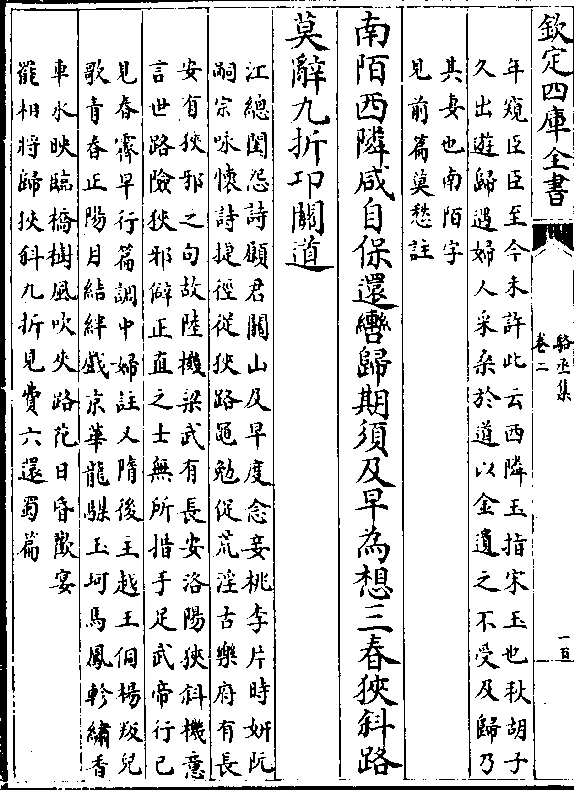 欽定四庫全書
駱丞集
卷二
一百
年窺臣臣至今未許此云西隣玉指宋玉也秋胡子
久出遊歸遇婦人采桑於道以金遺之不受及歸乃
其妻也南陌字
見前篇莫愁註
南陌西隣咸自保還轡歸期須及早為想三春狹斜路
莫辭九折卭關道
江總閨怨詩願君關山及早度念妾桃李片時妍阮
嗣宗咏懷詩捷徑從狹路黽勉從荒淫古樂府有長
安有狹邪之句故陸機梁武有長安洛陽狹斜機意
言世路險狹邪僻正直之士無所措手足武帝行已
見春霽早行篇調中婦註又隋後主越王侗楊叛兒
歌青春正陽月結絆戲京華龍騠玉珂馬鳳軫繡香
車水映臨橋樹風吹夾路花日昏歡宴
罷相將歸狹斜九折見費六還蜀篇